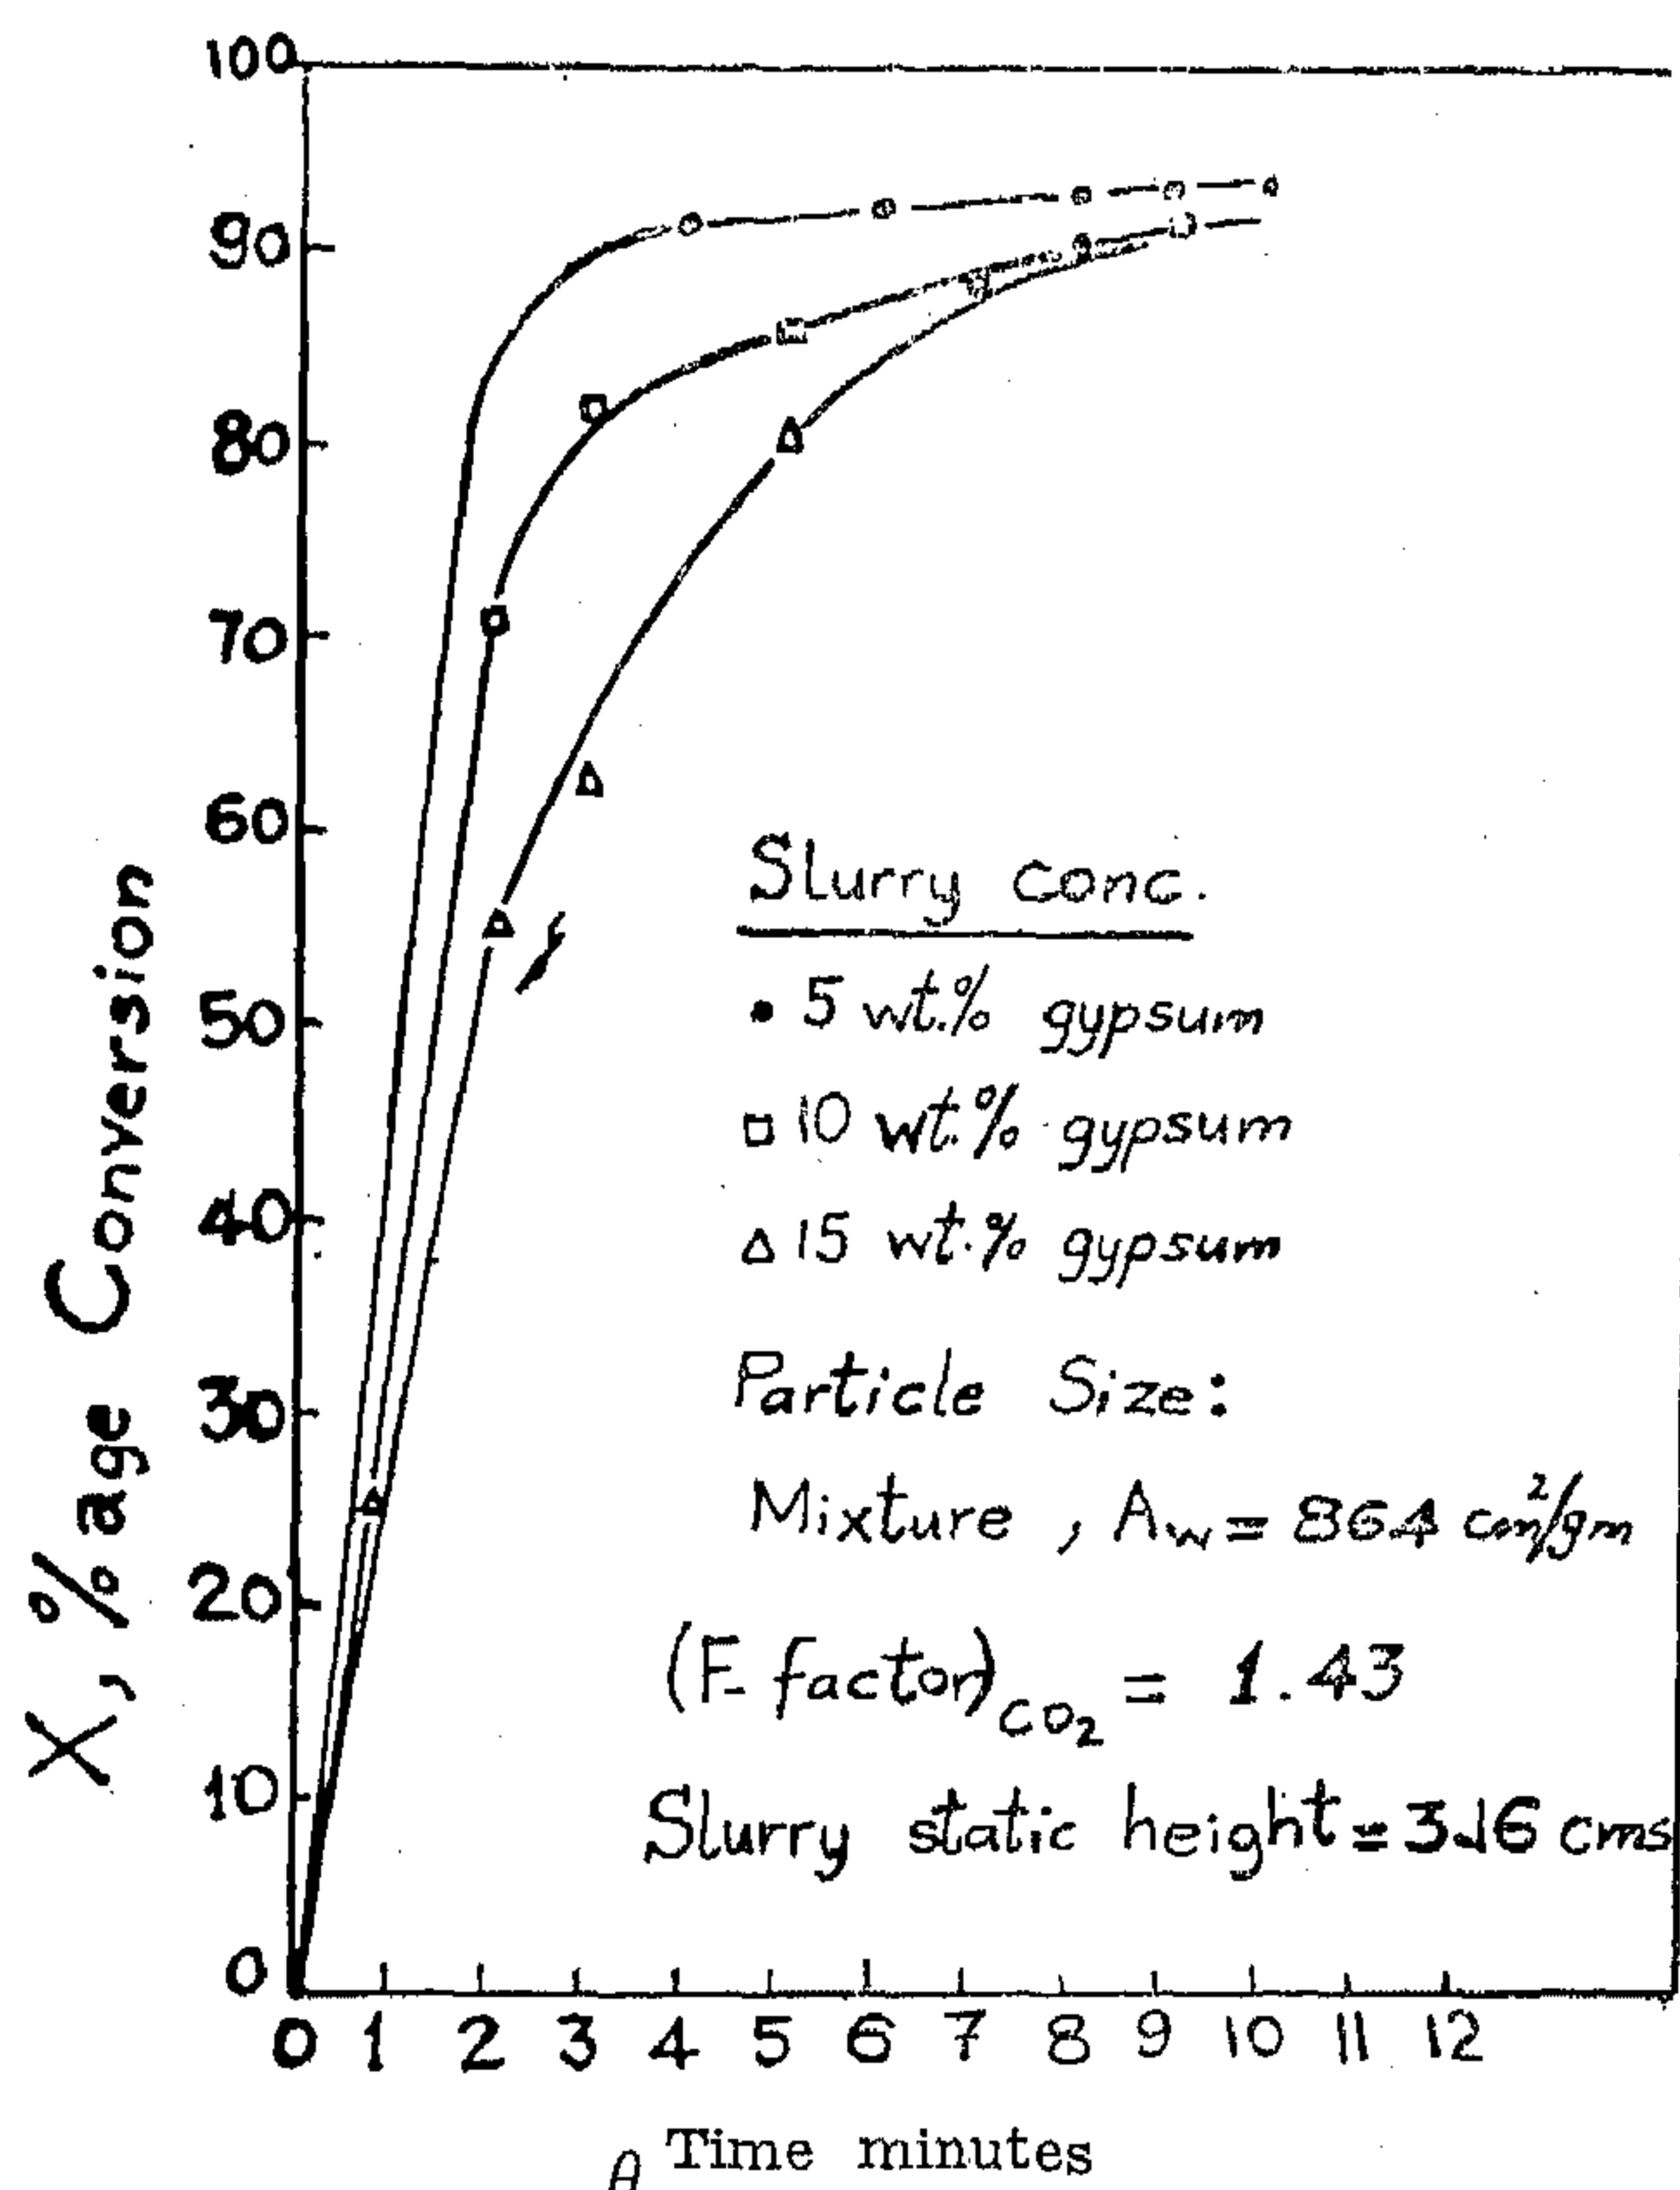 100
90
80
70
60
50
40
30
20
10
0
X, %age Conversion
Slurry conc.
• 5 wt.% gypsum
□ 10 wt.% gypsum
△ 15 wt.% gypsum
Particle Size:
Mixture, Aw = 864 cm²/gm
(F-factor)CO₂ = 1.43
Slurry static height = cms
0 1 2 3 4 5 6 7 8 9 10 11 12
θ Time minutes